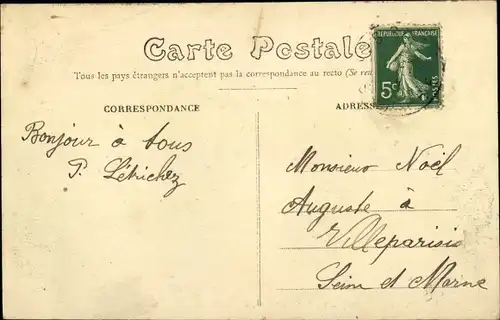 Carte Postale
Tous les pays étrangers n'acceptent pas la correspondance au recto (Se
CORRESPONDANCE
ADRESSE
REPUBLIQUE FRANÇAISE
5c
POSTES
Bonjour à tous
P. Létrichez
Monsieur Noël
Auguste à
Villeparisis
Seine et Marne